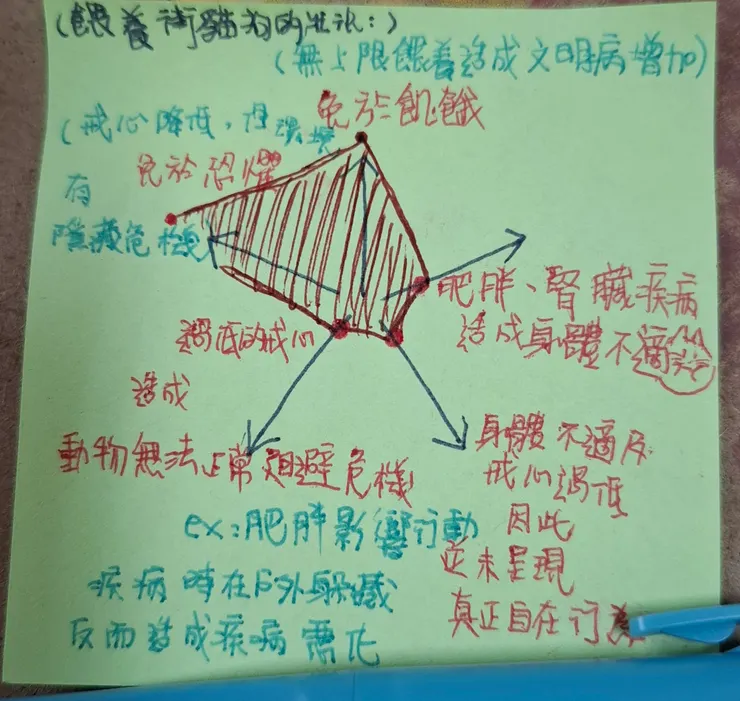 (餵養街貓狗的迷思:)
(無上限餵養造成文明病增加)
免於飢餓
(戒心降低,但環境
有
隱藏危機)
免於恐懼
肥胖、腎臟疾病
造成身體不適
過低的戒心
造成
動物無法正常迴避危機
ex:肥胖影響行動
疾病時在戶外躲藏
反而造成疾病惡化
身體不適及
戒心過低
因此
並未呈現
真正自在行為